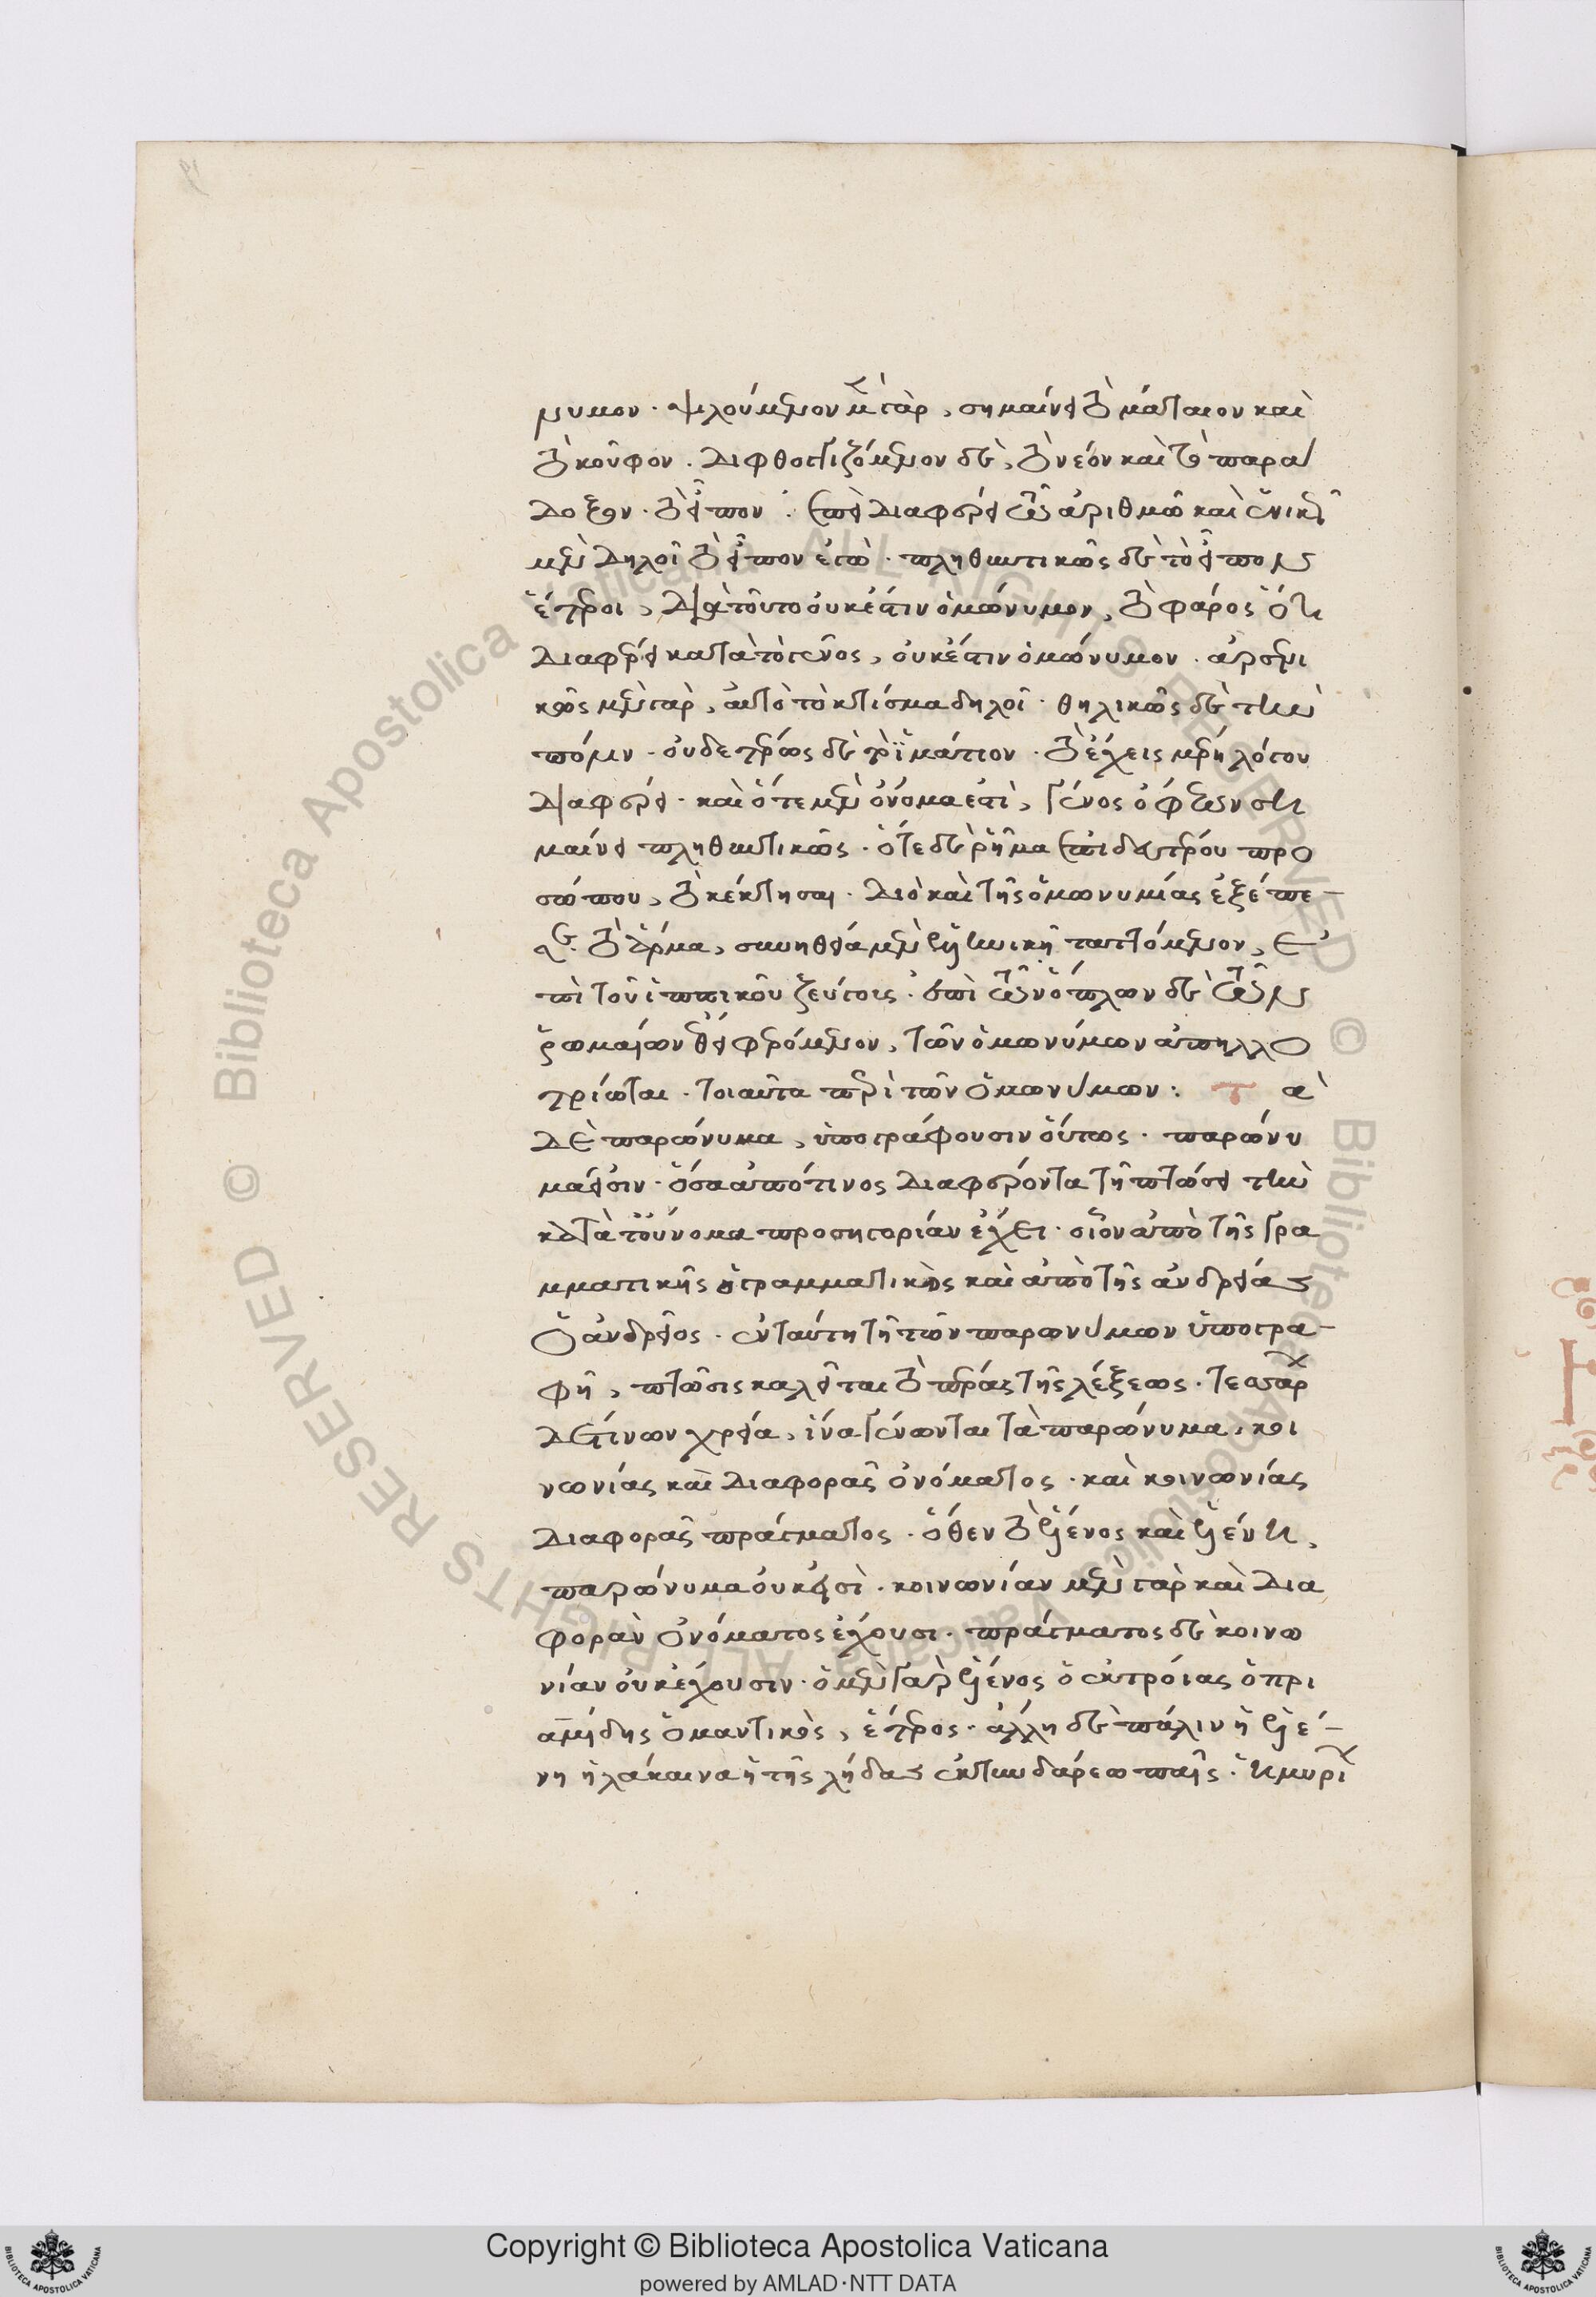 νυμον. ψιλούμενον μὲν γὰρ, σημαίνει τὸ μάταιον καὶ
τὸ κοῦφον. διφθογγιζόμενον δὲ, τὸ νέον καὶ τὸ παρά
δοξον. τὸ εἶπον. ἐπεὶ διαφέρει τῶ ἀριθμῶ καὶ ἑνικῶς
μὲν δηλοῖ τὸ εἶπον ἐγὼ. πληθυντικῶς δὲ τὸ εἶπον
ἕτεροι, διὰ τοῦτο οὐκ ἔστιν ὁμώνυμον, τὸ φάρος ὅτι
διαφέρει κατὰ τὸ γένος, οὐκ ἔστιν ὁμώνυμον. ἀρσενι
κῶς μὲν γὰρ, αὐτὸ τὸ κτίσμα δηλοῖ. θηλικῶς δὲ τὴν
πόλιν. οὐδετέρως δὲ τὸ ἱμάτιον. τὸ ἔχεις μέρη λόγου
διαφέρει. καὶ ὅτε μὲν ὄνομα ἐστὶ, γένος ὄφεων ση
μαίνει πληθυντικῶς. ὅτε δὲ ῥῆμα ἐπὶ δευτέρου προ
σώπου, τὸ κέκτησαι. διὸ καὶ τῆς ὁμωνυμίας ἐξέπε-
σε. τὸ ἅρμα, συνηθεία μὲν ἑλληνικῆ ταττόμενον, ἐ
πὶ τοῦ ἱππικοῦ ζεύγους. ἐπὶ τῶν ὅπλων δὲ τῶν
ῥωμαίων ἔθει φερόμενον, τῶν ὁμωνύμων ἀπηλλο
τρίωται. τοιαῦτα περὶ τῶν ὁμωνύμων: Τὰ
δὲ παρώνυμα, ὑπογράφουσιν οὕτως. παρώνυ
μά εἰσιν. ὅσα ἀπό τινος διαφέροντα τῆ πτώσει τὴν
κατὰ τοὔνομα προσηγορίαν ἔχει. οἷον ἀπὸ τῆς γρα
μματικῆς ὁ γραμματικὸς καὶ ἀπὸ τῆς ἀνδρείας
ὁ ἀνδρεῖος. ἐν ταύτη τῆ τῶν παρωνύμων ὑπογρα-
φῆ, πτῶσις καλεῖται τὸ πέρας τῆς λέξεως. τεσσάρων
δέ τινων χρεία, ἵνα γένωνται τὰ παρώνυμα, κοι
νωνίας καὶ διαφορᾶς ὀνόματος. καὶ κοινωνίας
διαφορᾶς πράγματος. ὅθεν τὸ ἕλενος καὶ ἑλένη,
παρώνυμα οὐκ εἰσὶ. κοινωνίαν μὲν γὰρ καὶ δια
φορὰν ὀνόματος ἔχουσι. πράγματος δὲ κοινω
νίαν οὐκ ἔχουσιν. ὁ μὲν γὰρ ἕλενος ὁ ἐκ τροίας ὁ πρι
αμίδης ὁ μαντικὸς, ἕτερος. ἄλλη δὲ πάλιν ἡ ἑλέ-
νη ἡ λάκαινα ἡ τῆς λήδας ἐκ τυνδάρεω παῖς. ἡ μυρί
Copyright © Biblioteca Apostolica Vaticana
powered by AMLAD·NTT DATA